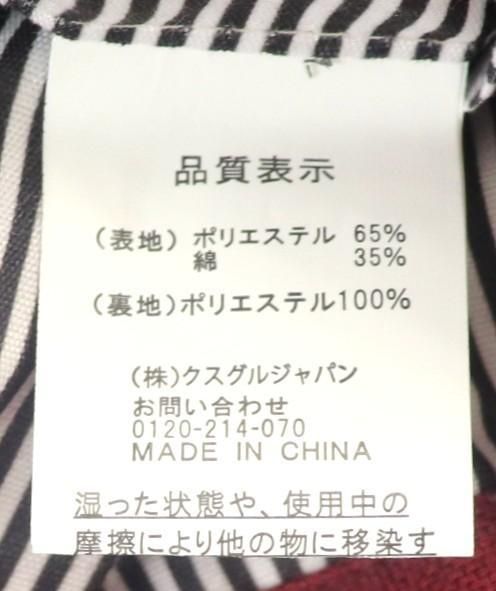 品質表示
(表地) ポリエステル 65%
綿 35%
(裏地)ポリエステル100%
(株)クスグルジャパン
お問い合わせ
0120-214-070
MADE IN CHINA
湿った状態や、使用中の
摩擦により他の物に移染す